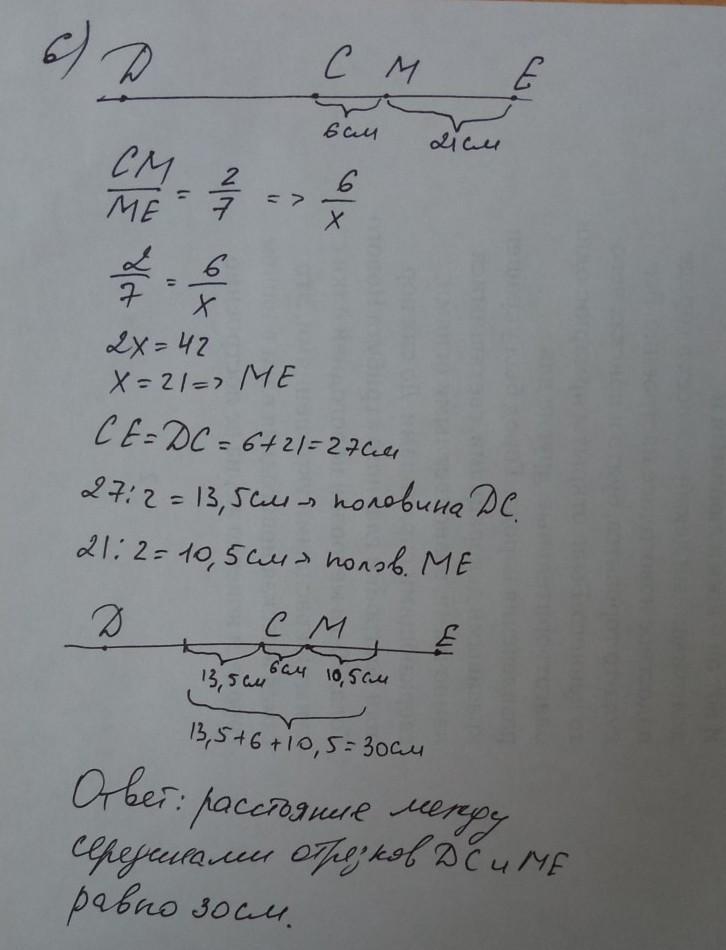 б) D C M E
6см 21см
CM/ME = 2/7 => 6/x
2/7 = 6/x
2x = 42
x = 21 => ME
CE = DC = 6+21 = 27см
27:2 = 13,5см → половина DC.
21:2 = 10,5см → полов. ME
D C M E
13,5см 6см 10,5см
13,5+6+10,5=30см
Ответ: расстояние между
серединами отрезков DC и ME
равно 30см.